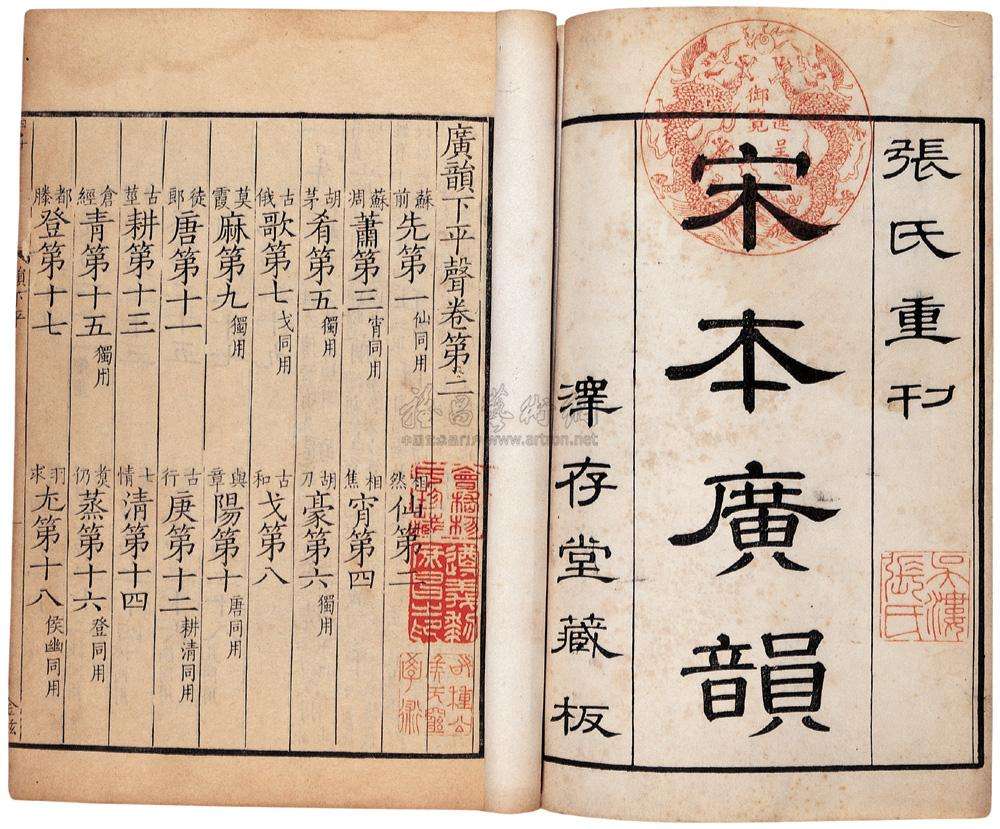 張氏重刊
宋本廣韻
澤存堂藏板
御覽
進呈
廣韻下平聲卷第二
蘇前先第一仙同用 相然仙第二
蘇周蕭第三宵同用 相焦宵第四
胡茅肴第五獨用 胡刀豪第六獨用
古俄歌第七戈同用 古和戈第八
莫霞麻第九獨用 與章陽第十唐同用
徒郎唐第十一 古行庚第十二耕清同用
古莖耕第十三 七情清第十四
倉經青第十五獨用 煑仍蒸第十六登同用
都滕登第十七 羽求尤第十八侯幽同用
www.artron.net